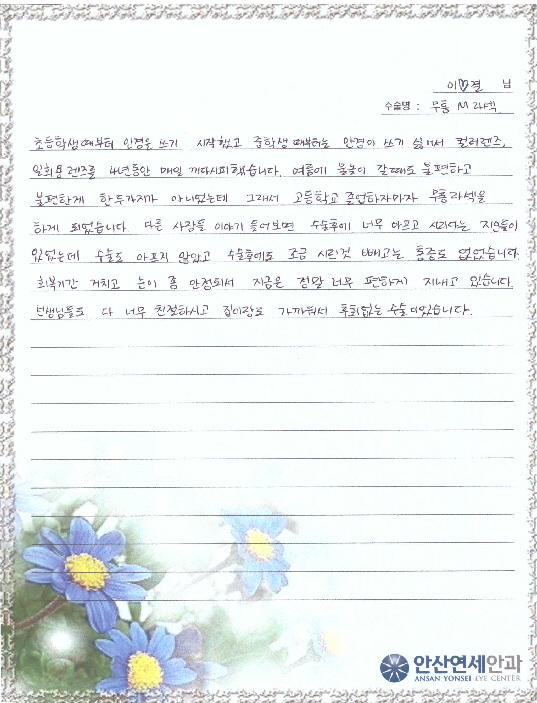 이♡결 님
수술명 : 무통 M라섹
초등학생때부터 안경을 쓰기 시작했고 중학생 때부터는 안경이 쓰기 싫어서 컬러렌즈,
일회용 렌즈를 4년동안 매일 끼다시피했습니다. 여름에 물놀이 갈때도 불편하고
불편한게 한두가지가 아니었는데 그래서 고등학교 졸업하자마자 무통라섹을
하게 되었습니다. 다른 사람들 이야기 들어보면 수술후에 너무 아프고 시리다는 지인들이
있었는데 수술도 아프지 않았고 수술후에도 조금 시린것 빼고는 통증도 없었습니다.
회복기간 거치고 눈이 좀 안정되서 지금은 정말 너무 편하게 지내고 있습니다.
선생님들도 다 너무 친절하시고 집이랑도 가까워서 후회없는 수술이었습니다.
안산연세안과
ANSAN YONSEI EYE CENTER